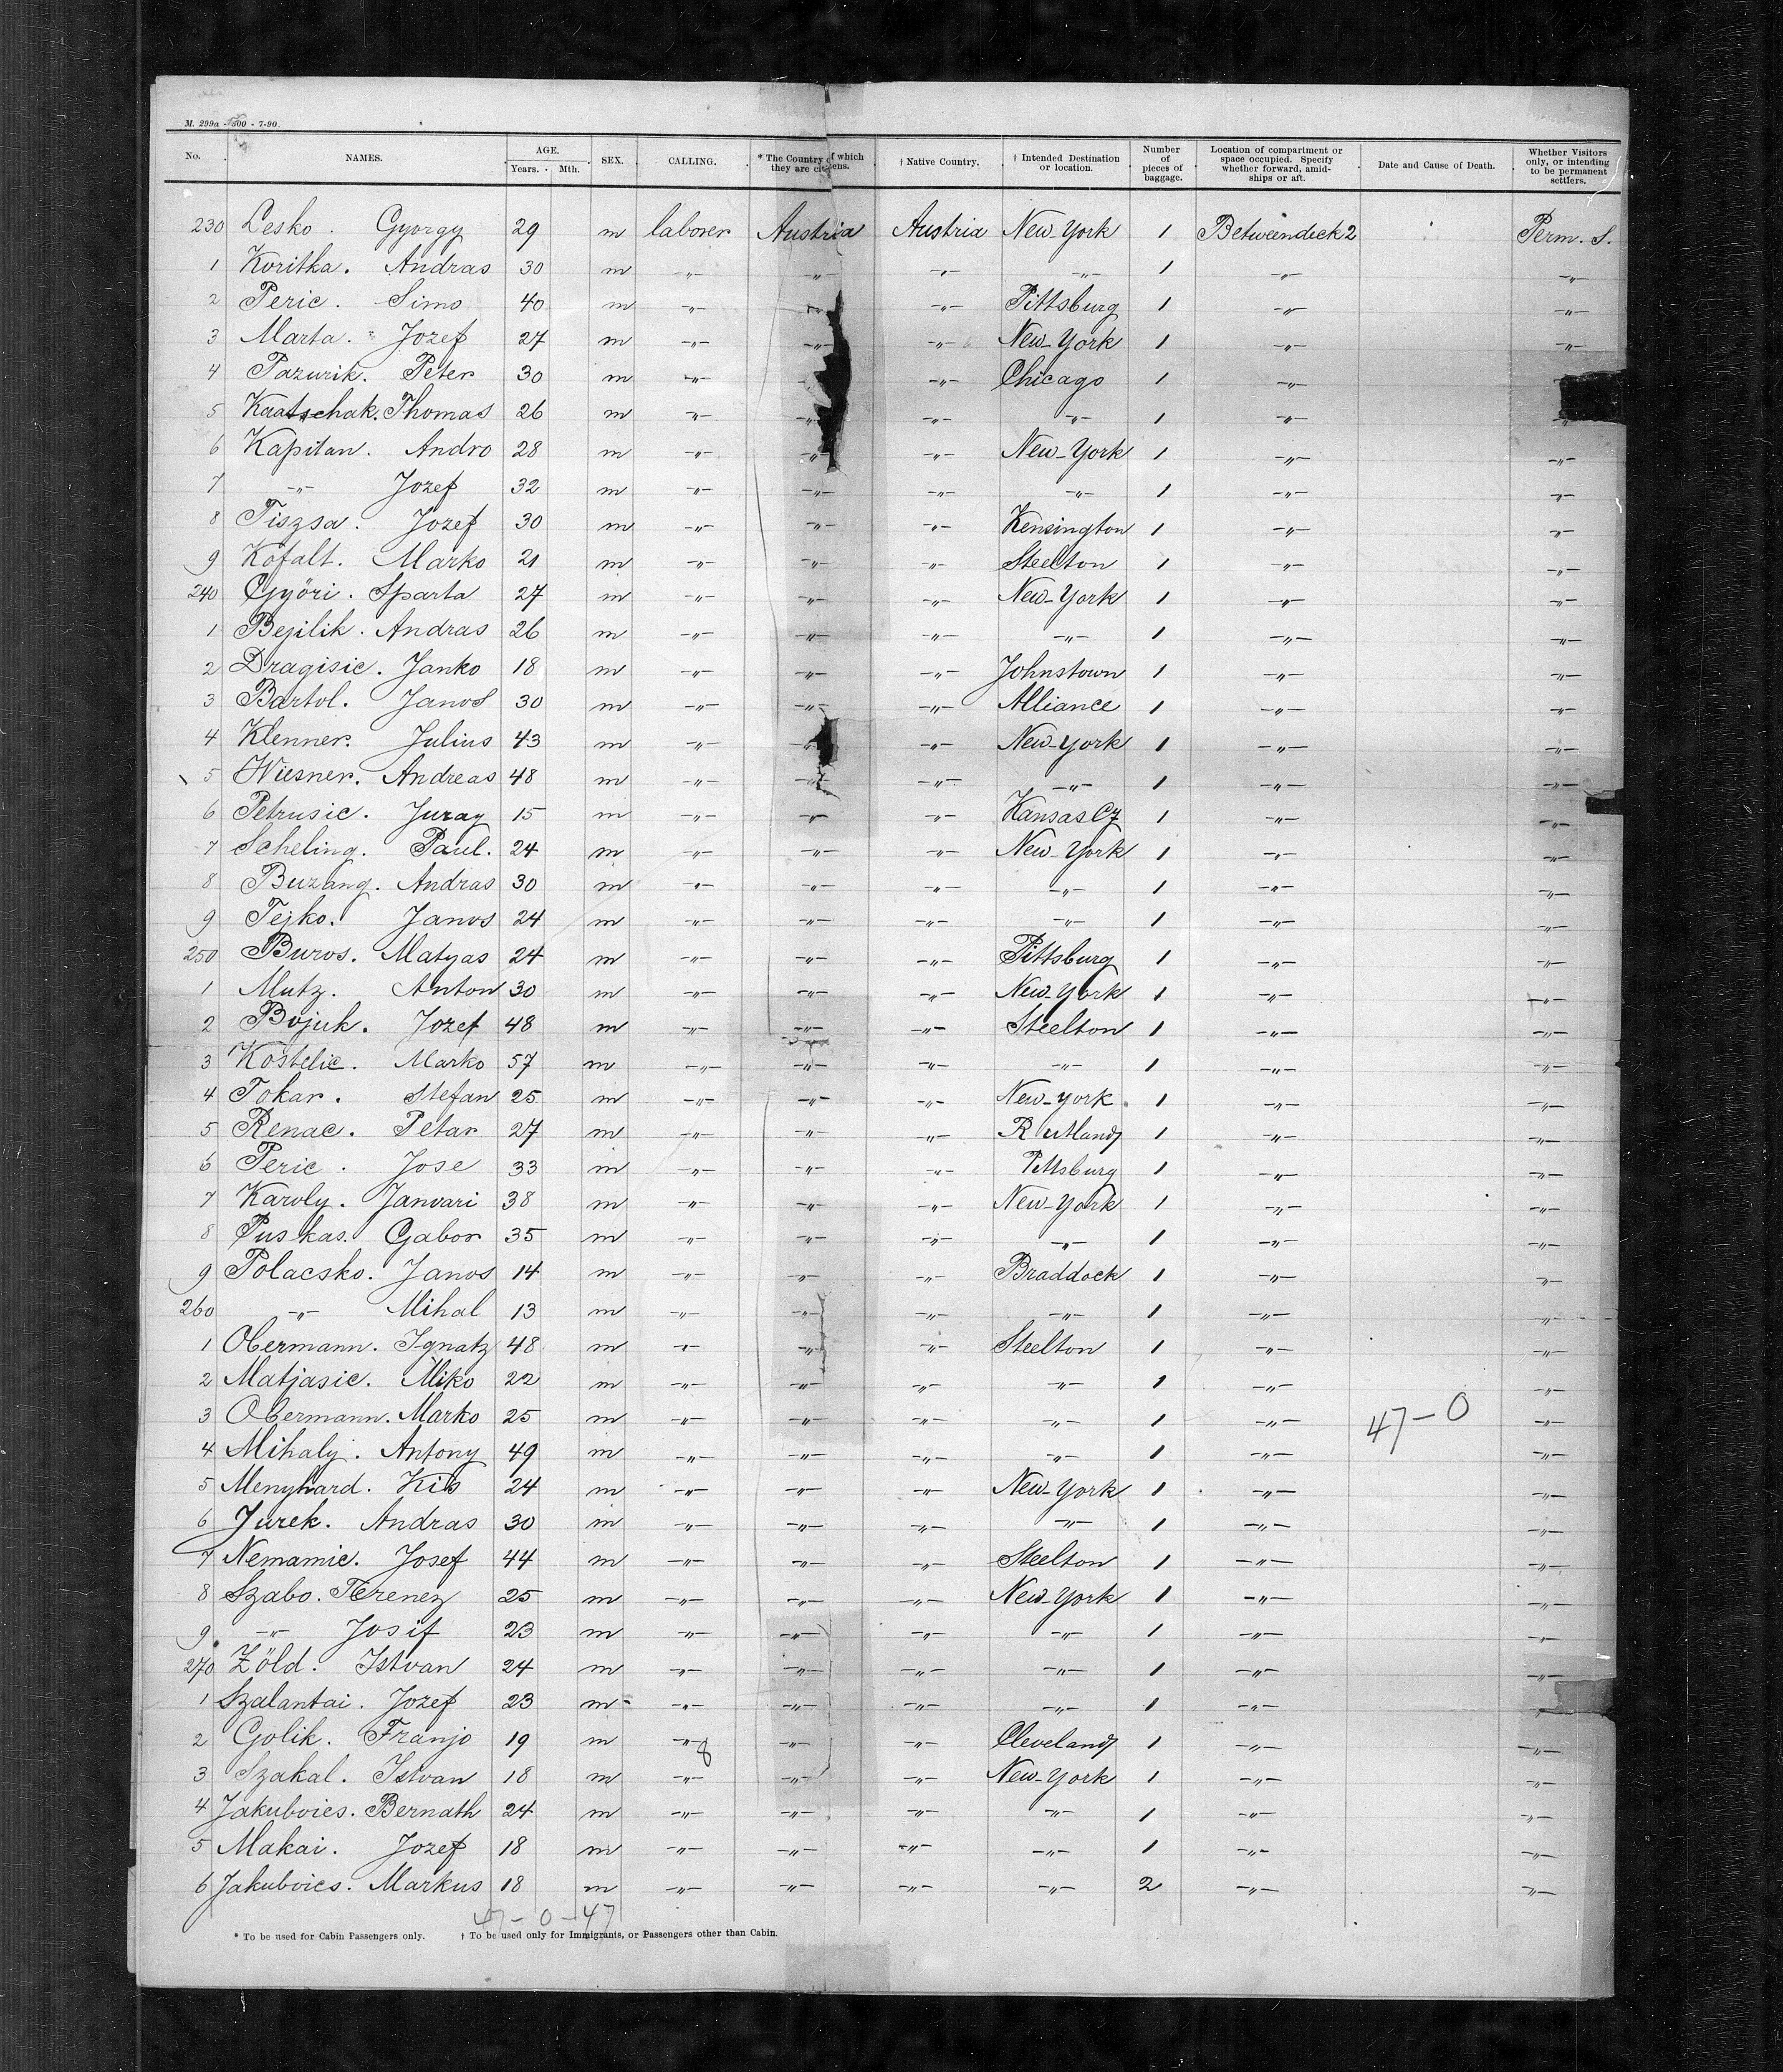 M. 299a - 500 - 7-90.
No. NAMES. AGE. Years. Mth. SEX. CALLING. * The Country of which they are citizens. † Native Country. † Intended Destination or location. Number of pieces of baggage. Location of compartment or space occupied. Specify whether forward, amidships or aft. Date and Cause of Death. Whether Visitors only, or intending to be permanent settlers.
230 Lesko. Gyorgy 29 m laborer Austria Austria New-York 1 Betweendeck 2 Perm. S.
1 Koritka. Andras 30 m -"- -"- -"- -"- 1 -"- -"-
2 Peric. Simo 40 m -"- -"- -"- Pittsburg 1 -"- -"-
3 Marta. Jozef 27 m -"- -"- -"- New-York 1 -"- -"-
4 Pazurik. Peter 30 m -"- -"- Chicago 1 -"-
5 Kaatschak. Thomas 26 m -"- -"- -"- -"- 1 -"- -"-
6 Kapitan. Andro 28 m -"- -"- -"- New-York 1 -"- -"-
7 -"- Jozef 32 m -"- -"- -"- -"- 1 -"- -"-
8 Tiszsa. Jozef 30 m -"- -"- -"- Kensington 1 -"- -"-
9 Kofalt. Marko 21 m -"- -"- -"- Steelton 1 -"- -"-
240 Györi. Sparta 27 m -"- -"- -"- New-York 1 -"- -"-
1 Bejilik. Andras 26 m -"- -"- -"- -"- 1 -"- -"-
2 Dragisic. Janko 18 m -"- -"- -"- Johnstown 1 -"- -"-
3 Bartol. Janos 30 m -"- -"- -"- Alliance 1 -"- -"-
4 Klenner. Julius 43 m -"- -"- -"- New-York 1 -"- -"-
5 Wiesner. Andreas 48 m -"- -"- -"- -"- 1 -"- -"-
6 Petrusic. Juray 15 m -"- -"- -"- Kansas Cy 1 -"- -"-
7 Scheling. Paul. 24 m -"- -"- -"- New-York 1 -"- -"-
8 Buzang. Andras 30 m -"- -"- -"- -"- 1 -"- -"-
9 Tejko. Janos 24 m -"- -"- -"- -"- 1 -"- -"-
250 Buros. Matyas 24 m -"- -"- -"- Pittsburg 1 -"- -"-
1 Mutz. Anton 30 m -"- -"- -"- New-York 1 -"- -"-
2 Bojuk. Jozef 48 m -"- -"- -"- Steelton 1 -"- -"-
3 Kostelic. Marko 57 m -"- -"- -"- -"- 1 -"- -"-
4 Tokar. Stefan 25 m -"- -"- -"- New-York 1 -"- -"-
5 Renac. Petar 27 m -"- -"- -"- Rutland 1 -"- -"-
6 Peric. Jose 33 m -"- -"- -"- Pittsburg 1 -"- -"-
7 Karoly. Janvari 38 m -"- -"- -"- New-York 1 -"- -"-
8 Puskas. Gabor 35 m -"- -"- -"- -"- 1 -"- -"-
9 Polacsko. Janos 14 m -"- -"- -"- Braddock 1 -"- -"-
260 -"- Mihal 13 m -"- -"- -"- -"- 1 -"- -"-
1 Obermann. Ignatz 48 m -"- -"- -"- Steelton 1 -"- -"-
2 Matjasic. Miko 22 m -"- -"- -"- -"- 1 -"- -"-
3 Obermann. Marko 25 m -"- -"- -"- -"- 1 -"- 47-0 -"-
4 Mihaly. Antony 49 m -"- -"- -"- -"- 1 -"- -"-
5 Menyhard. Kis 24 m -"- -"- -"- New-York 1 -"- -"-
6 Jurek. Andras 30 m -"- -"- -"- -"- 1 -"- -"-
7 Nemamic. Josef 44 m -"- -"- -"- Steelton 1 -"- -"-
8 Szabo. Ferencz 25 m -"- -"- -"- New-York 1 -"- -"-
9 -"- Josif 23 m -"- -"- -"- -"- 1 -"- -"-
270 Zöld. Istvan 24 m -"- -"- -"- -"- 1 -"- -"-
1 Szalantai. Jozef 23 m -"- -"- -"- -"- 1 -"- -"-
2 Golik. Franjo 19 m -"- 8 -"- -"- Cleveland 1 -"- -"-
3 Szakal. Istvan 18 m -"- -"- -"- New-York 1 -"- -"-
4 Jakubvics. Bernath 24 m -"- -"- -"- -"- 1 -"- -"-
5 Makai. Jozef 18 m -"- -"- -"- -"- 1 -"- -"-
6 Jakubvics. Markus 18 m -"- -"- -"- -"- 2 -"- -"-
47-0-47
* To be used for Cabin Passengers only. † To be used only for Immigrants, or Passengers other than Cabin.